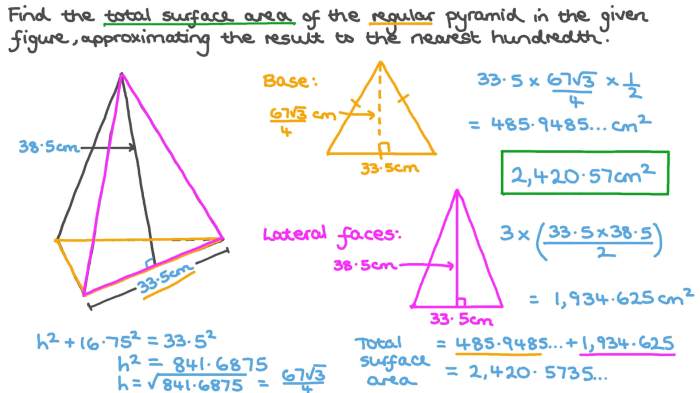 Find the total surface area of the regular pyramid in the given
figure, approximating the result to the nearest hundredth.
38.5cm
33.5cm
Base:
67√3/4 cm
33.5cm
33.5 × 67√3/4 × 1/2
= 485.9485... cm²
2,420.57cm²
Lateral faces:
38.5cm
33.5cm
3 × (33.5 × 38.5/2)
= 1,934.625cm²
h² + 16.75² = 33.5²
h² = 841.6875
h = √841.6875 = 67√3/4
Total surface area = 485.9485... + 1,934.625
= 2,420.5735...